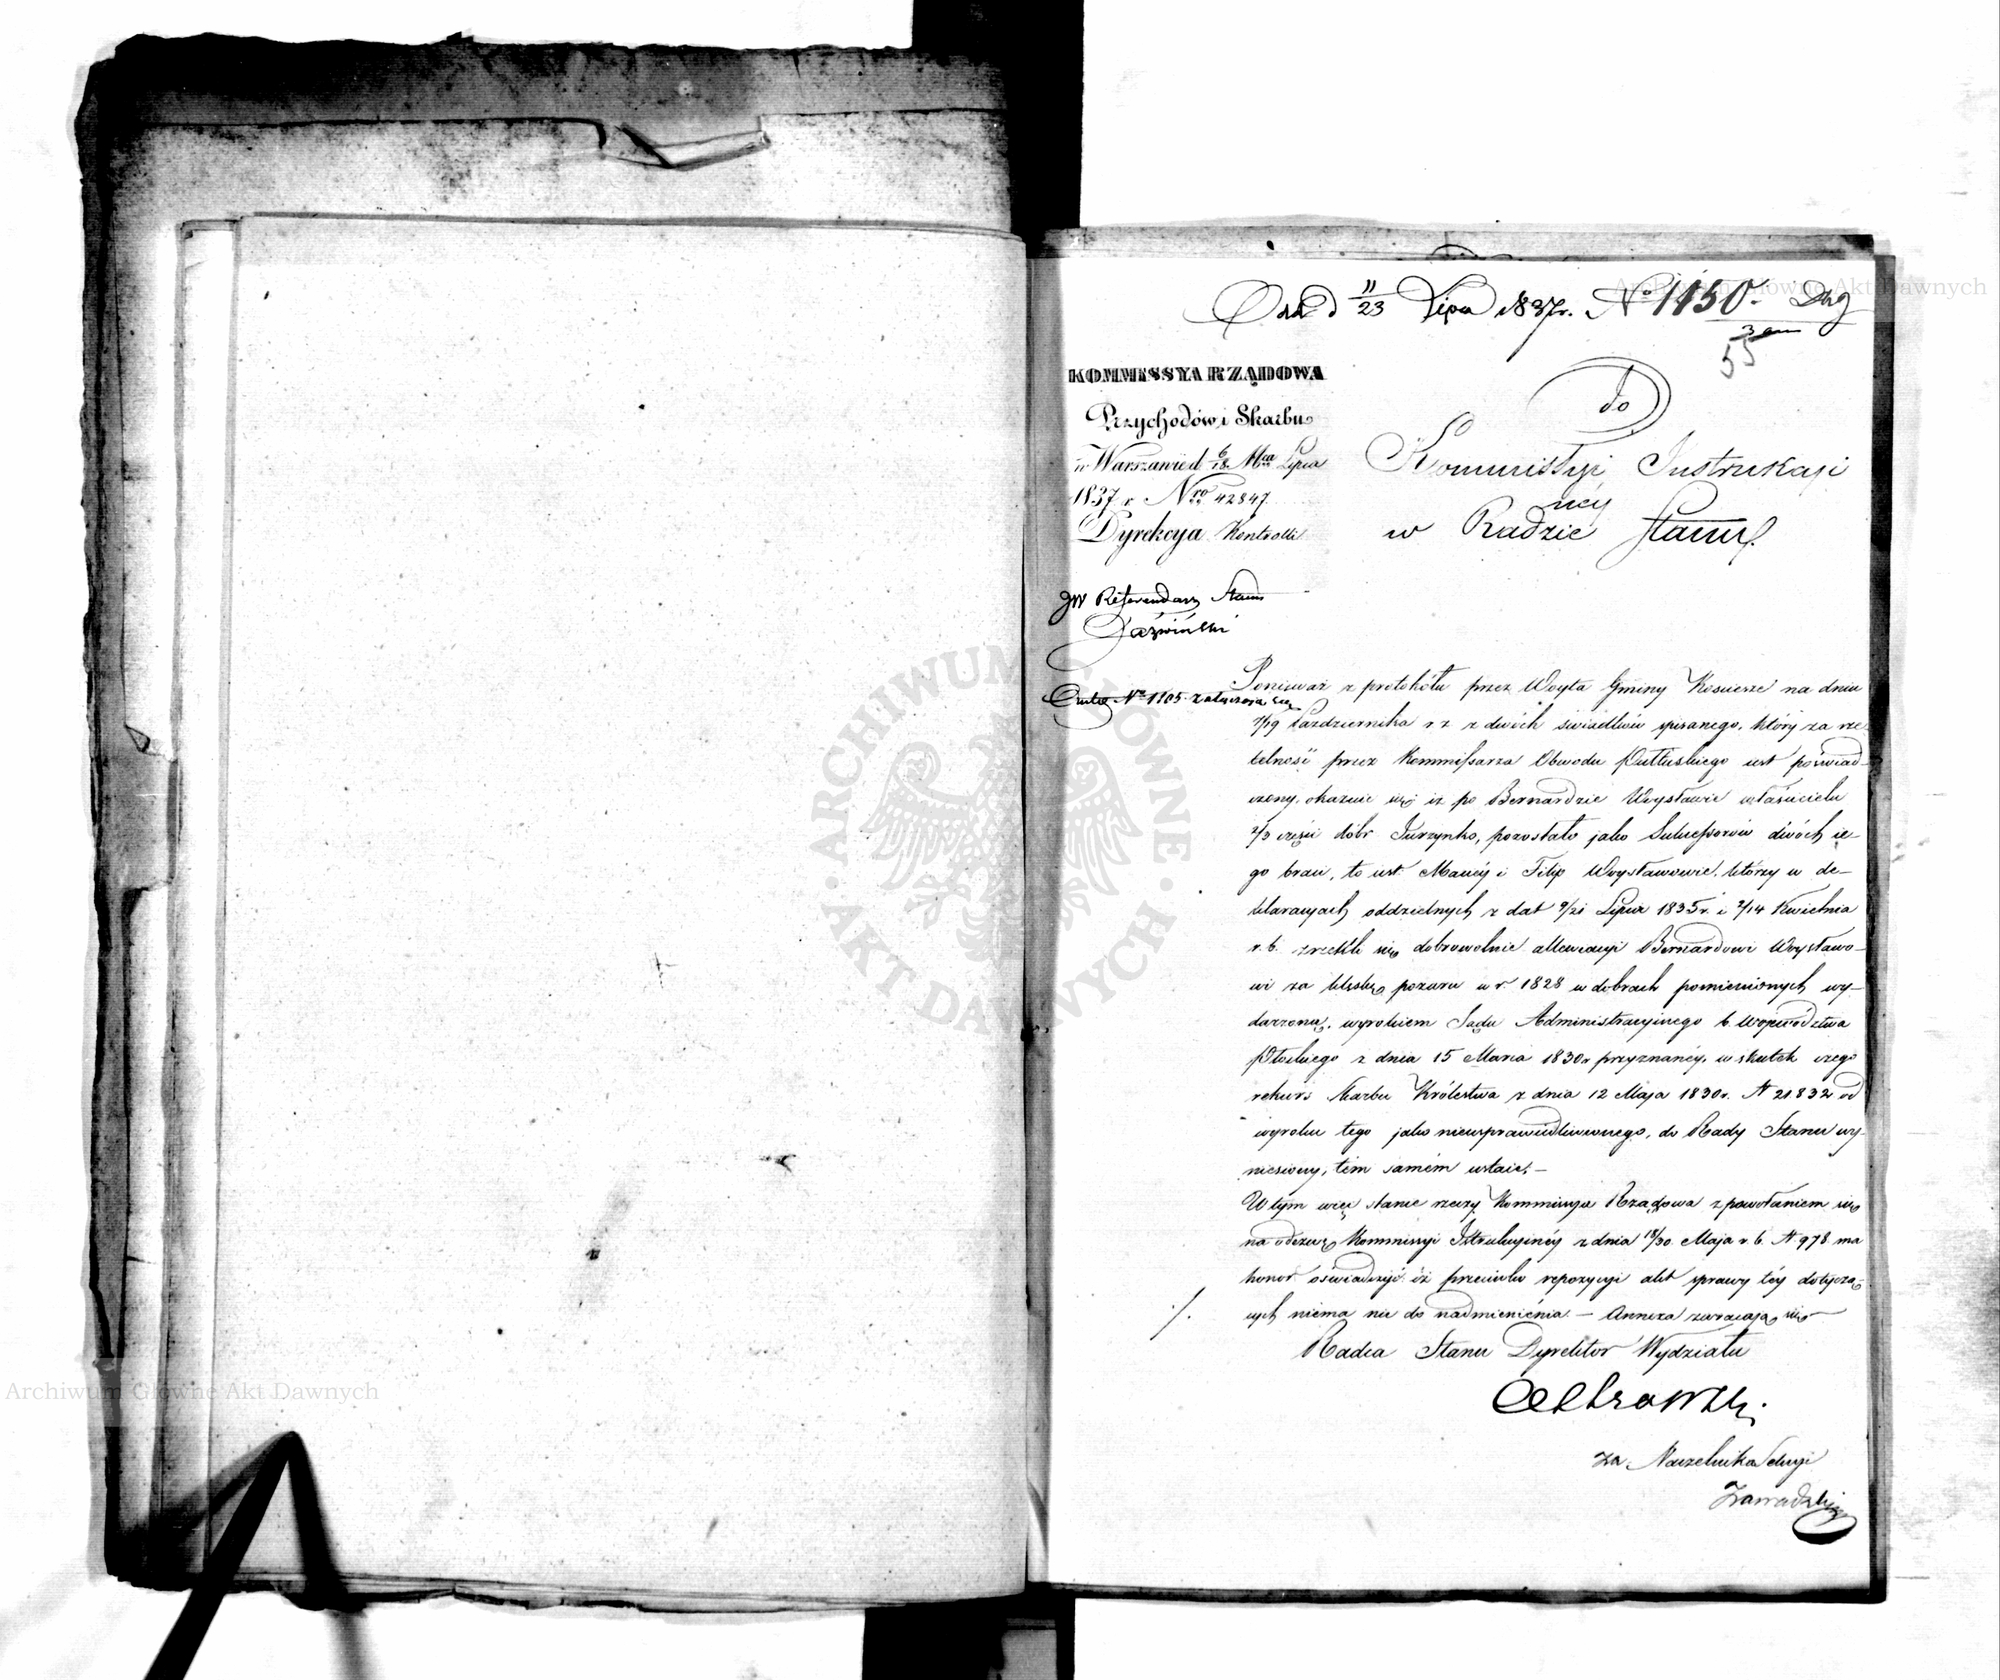 Odd 11/23 Lipca 1837 r. No 1150.
55
do
KOMMISSYA RZĄDOWA
Przychodów i Skarbu
w Warszawie d. 6/18 Mca Lipca
1837 r. Nro 42847.
Dyrekcya Kontrolli
Kommissyi Instrukcyj
néy
w Radzie Stanu.
JW Referendarz Stanu
No 1105 załączając się
Ponieważ z protokółu przez Woyta Gminy Kosiorze na dniu
7/19 Października r. z. z dwóch świadków spisanego, który za rze-
telność przez Kommissarza Obwodu Pułtuskiego iest poświad-
czony, okazuie się iż po Bernardzie Woysławie właścicielu
2/3 części dóbr Jurzynko, pozostało jako Sukcessorów dwóch ie-
go braci, to iest: Maciéy i Filip Woysławowie, którzy w de-
klaracyach oddzielnych z dat 9/21 Lipca 1835 r. i 2/14 Kwietnia
r. b. zrzekli się dobrowolnie allewiacyi Bernardowi Woysławo-
wi za klęskę pożaru w r. 1828 w dobrach pomienionych wy-
darzoną, wyrokiem Sądu Administracyjnego b. Województwa
Płockiego z dnia 15 Marca 1830 r. przyznanéy, w skutek czego
rekurs Skarbu Królestwa z dnia 12 Maja 1830 r. N 21832 od
wyroku tego jako niesprawiedliwionego, do Rady Stanu wy-
niesiony, tém samém ustaie. —
W tym więc stanie rzeczy Kommissya Rządowa z powołaniem się
na odezwę Kommissyi Instrukcyjnéy z dnia 18/30 Maja r. b. N 978 ma
honor oświadczyć iż przeciwko repozycyi akt sprawy téy dotyczą-
cych niema nic do nadmienienia. — Annexa zwracają się
Radca Stanu Dyrektor Wydziału
za Naczelnika Sekcyi
Zawadzki
ARCHIWUM GŁÓWNE · AKT DAWNYCH ·
Archiwum Główne Akt Dawnych
Archiwum Główne Akt Dawnych